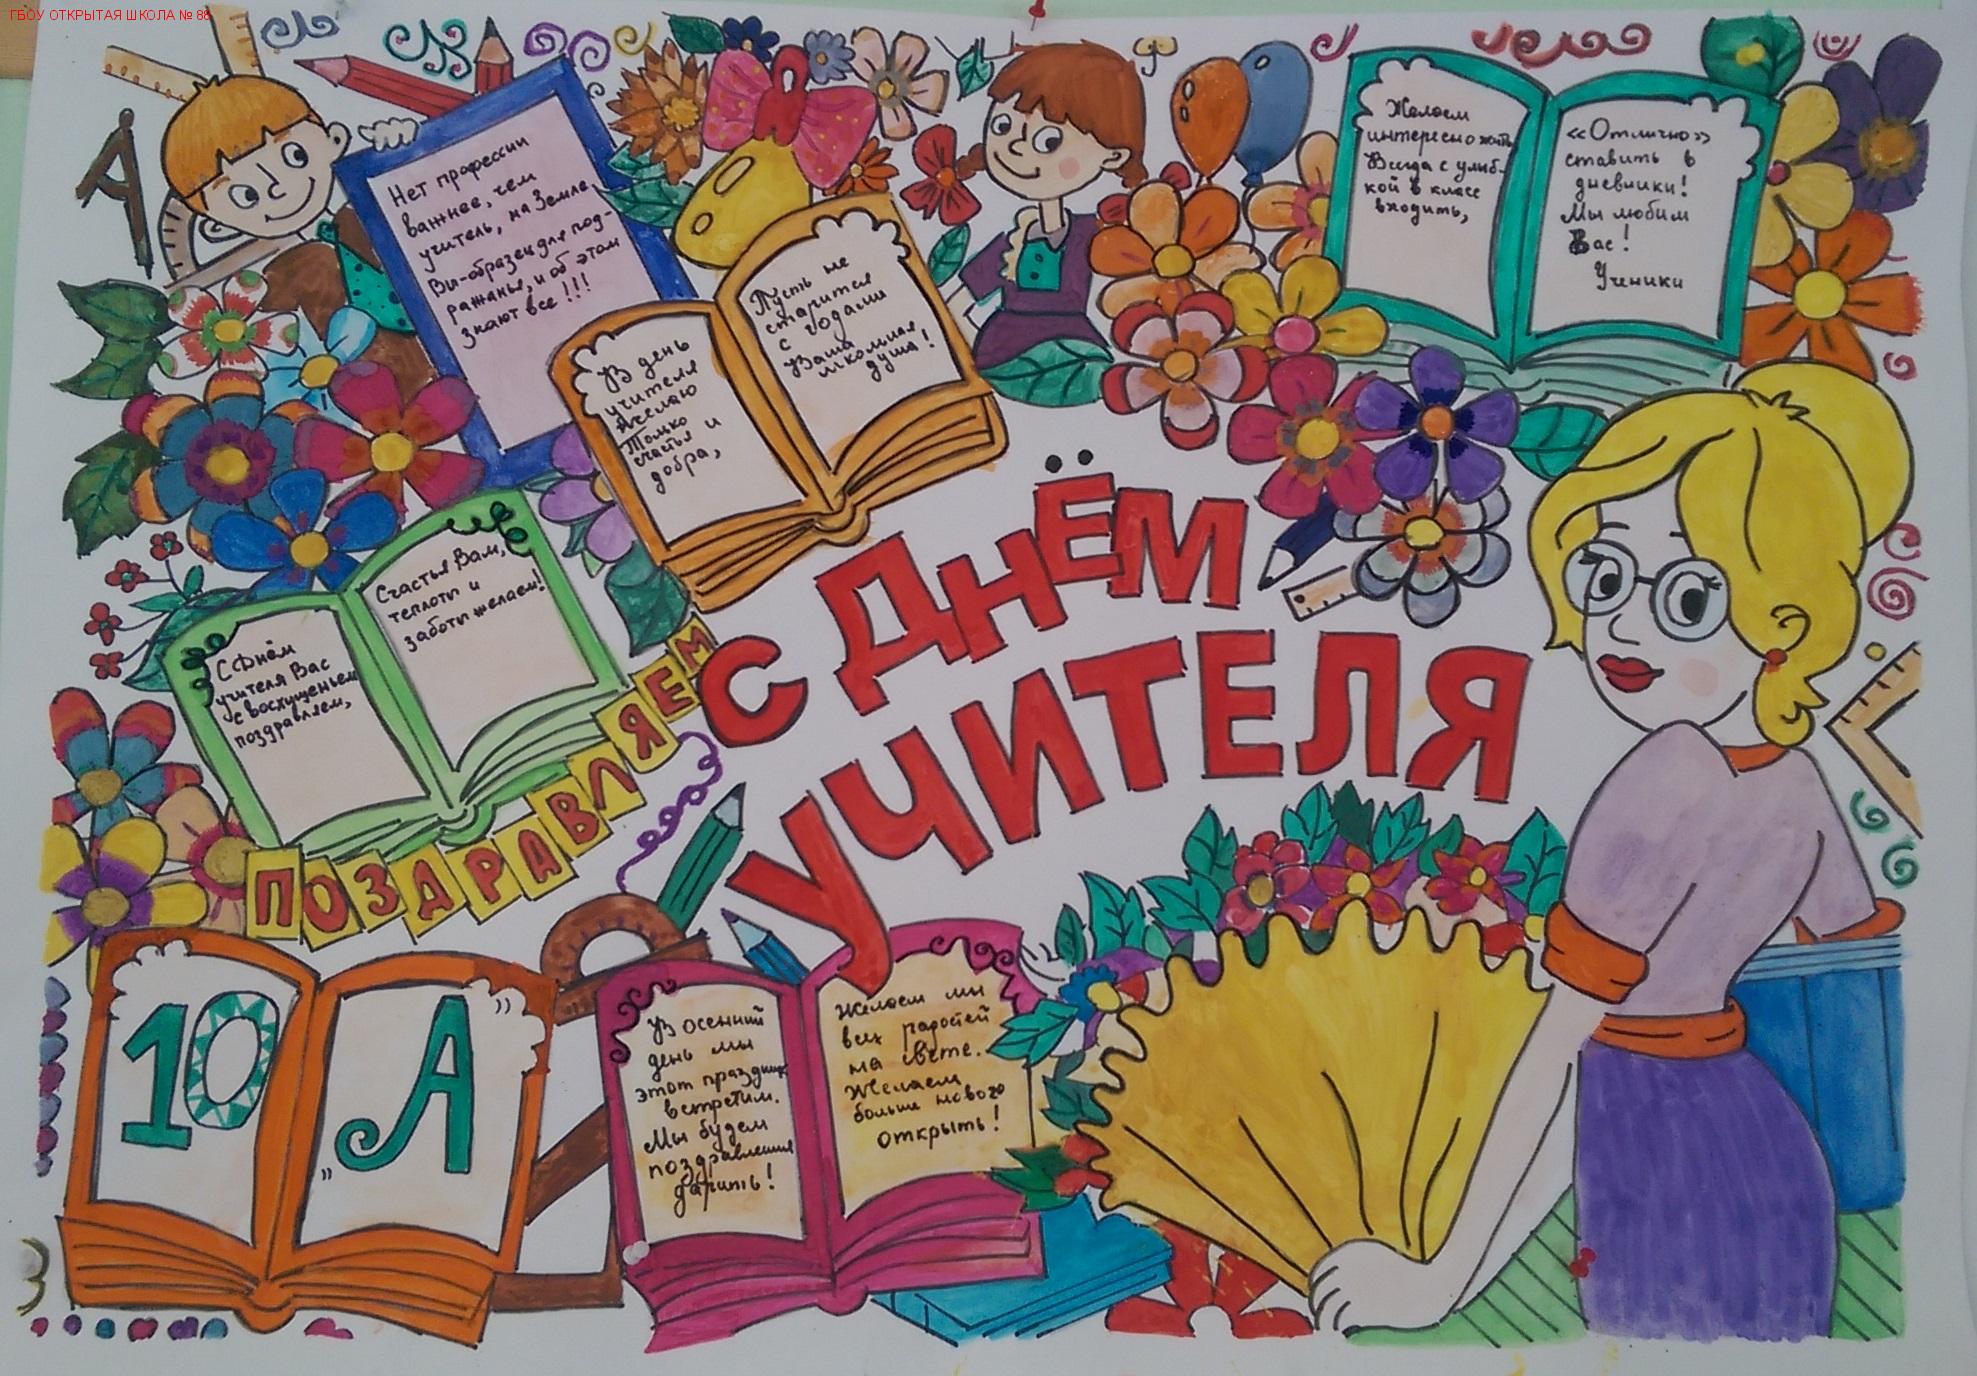 ГБОУ ОТКРЫТАЯ ШКОЛА № 88
Нет профессии
важнее, чем
учитель, на Земле,
Вы-образец для под-
ражанья, и об этом
знают все!!!
В день
учителя
желаю
Только
счастья и
добра,
Пусть не
старится
с годами
Ваша
школьная
душа!
Желаем
интересно жить
Всегда с улыб-
кой в класс
входить,
«Отлично»
ставить в
дневники!
Мы любим
Вас!
Ученики
С Днём
учителя Вас
с восхищеньем
поздравляем,
Счастья Вам,
теплоты и
заботы желаем!
ПОЗДРАВЛЯЕМ
С ДНЁМ
УЧИТЕЛЯ
10 „А”
В осенний
день мы
этот праздник
встретим.
Мы будем
поздравления
дарить!
Желаем мы
всех радостей
на свете.
Желаем
больше нового
открыть!